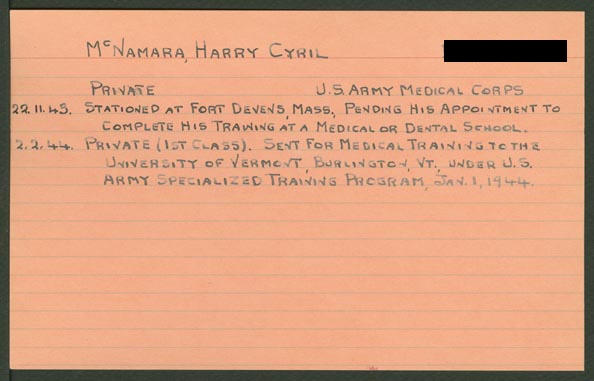 McNAMARA, HARRY CYRIL
PRIVATE U.S. ARMY MEDICAL CORPS
22.11.43. STATIONED AT FORT DEVENS, MASS., PENDING HIS APPOINTMENT TO
COMPLETE HIS TRAINING AT A MEDICAL OR DENTAL SCHOOL.
2.2.44. PRIVATE (1ST CLASS). SENT FOR MEDICAL TRAINING TO THE
UNIVERSITY OF VERMONT, BURLINGTON, VT., UNDER U.S.
ARMY SPECIALIZED TRAINING PROGRAM, JAN. 1, 1944.